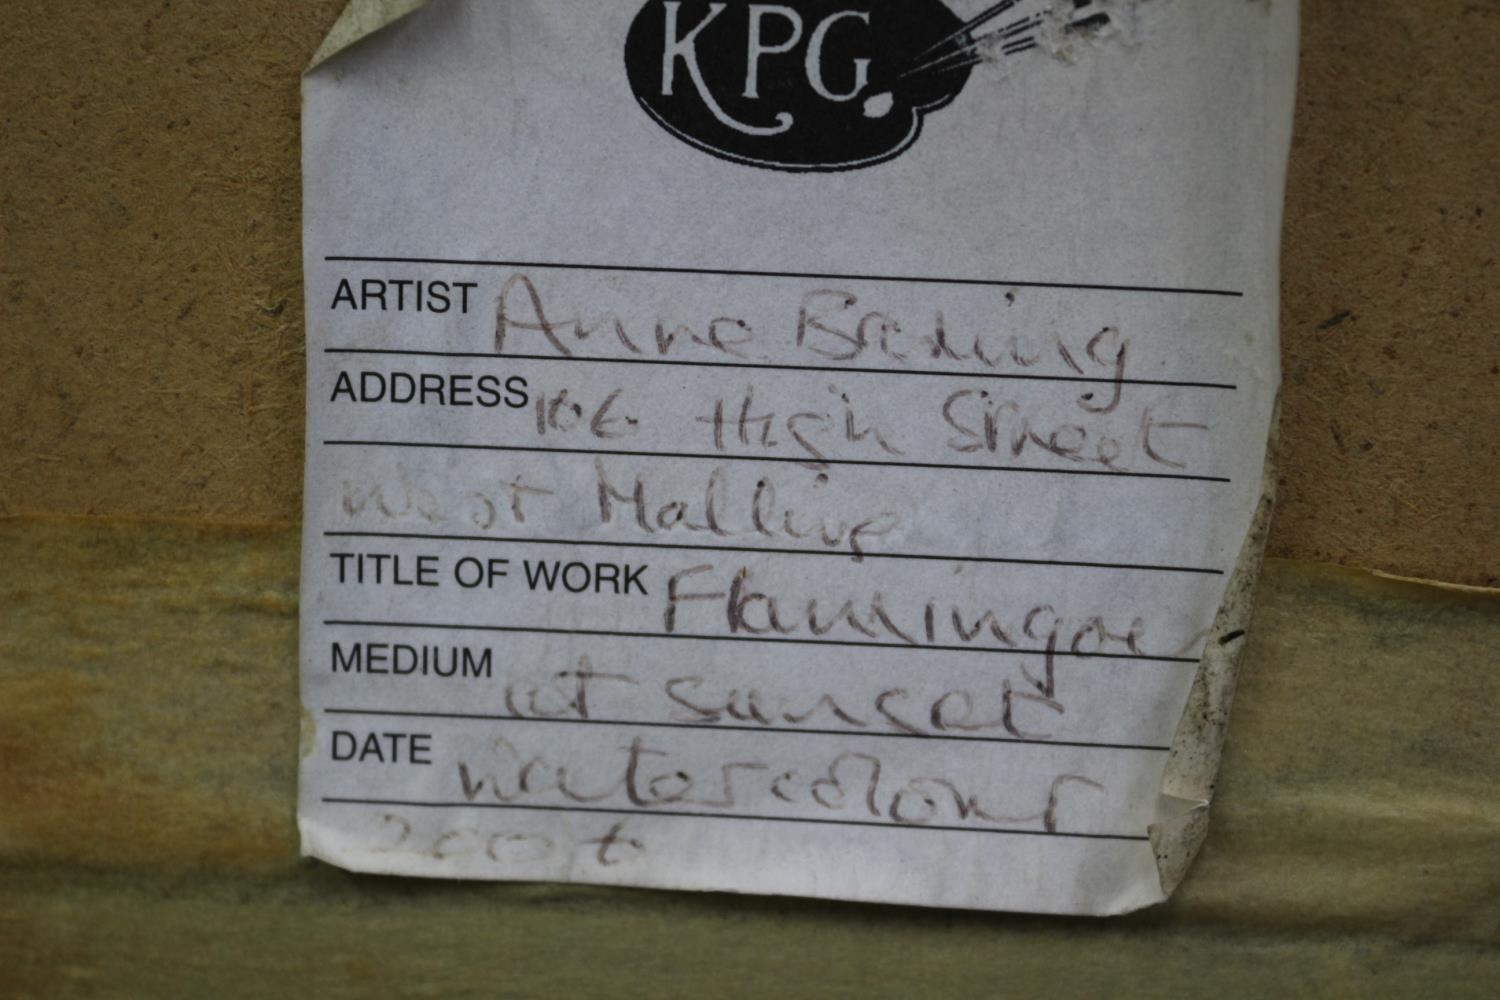 KPG
ARTIST Anne
ADDRESS 106 High Street
West Malling
TITLE OF WORK Flamingoes
MEDIUM at Sunset
DATE Watercolour